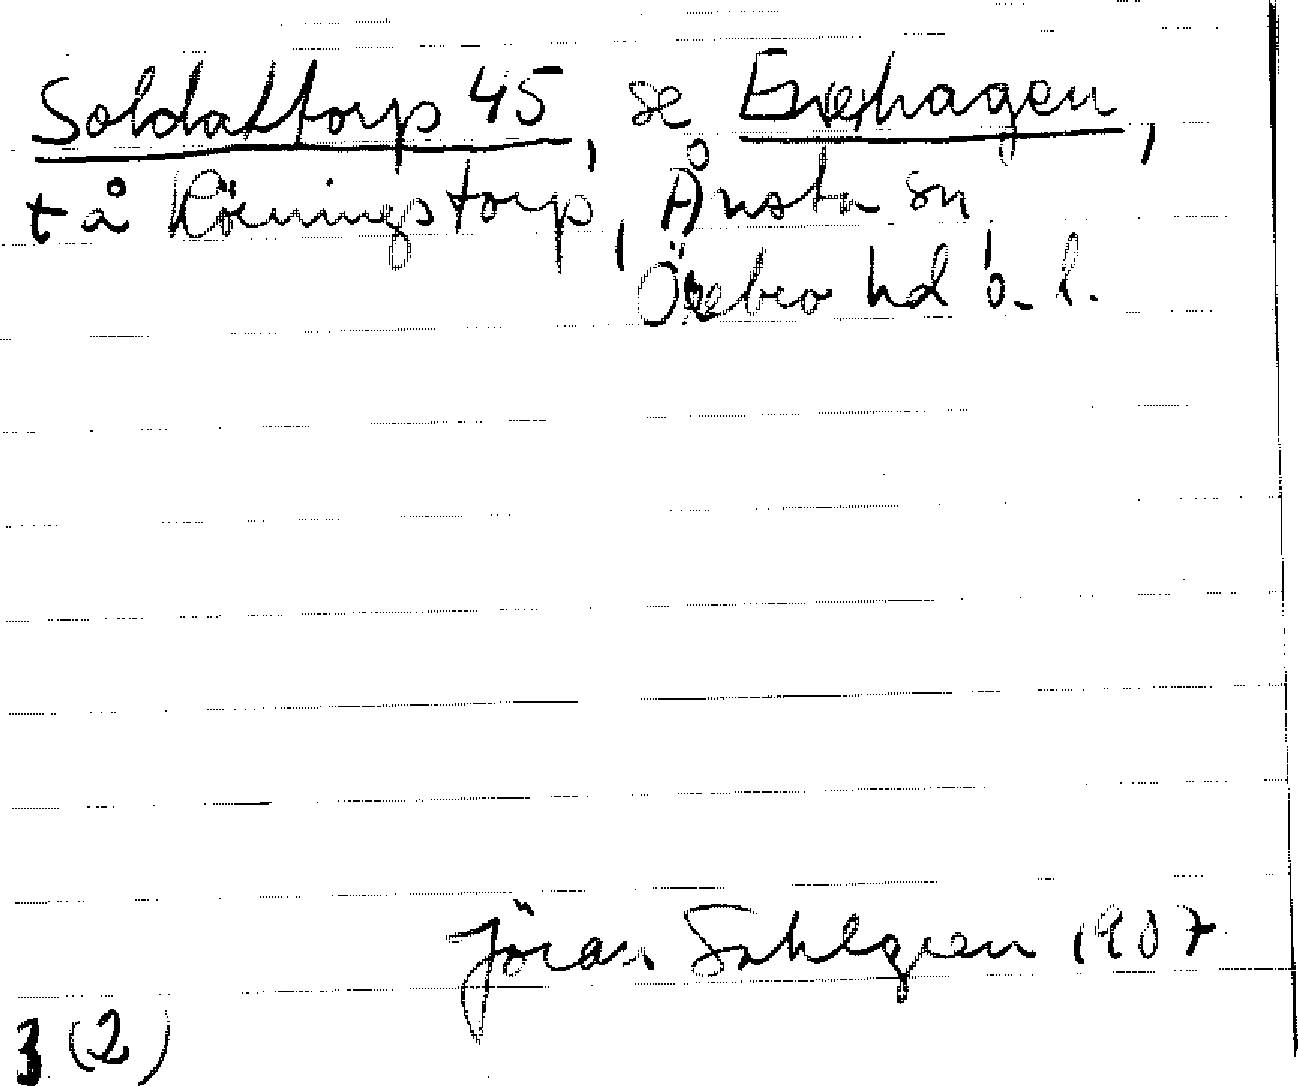 Soldattorp 45, se Enehagen,
t å Röningstorp, Ånsta sn,
Örebro hd ö. l.
Jöran Sahlgren 1907
3 (2)